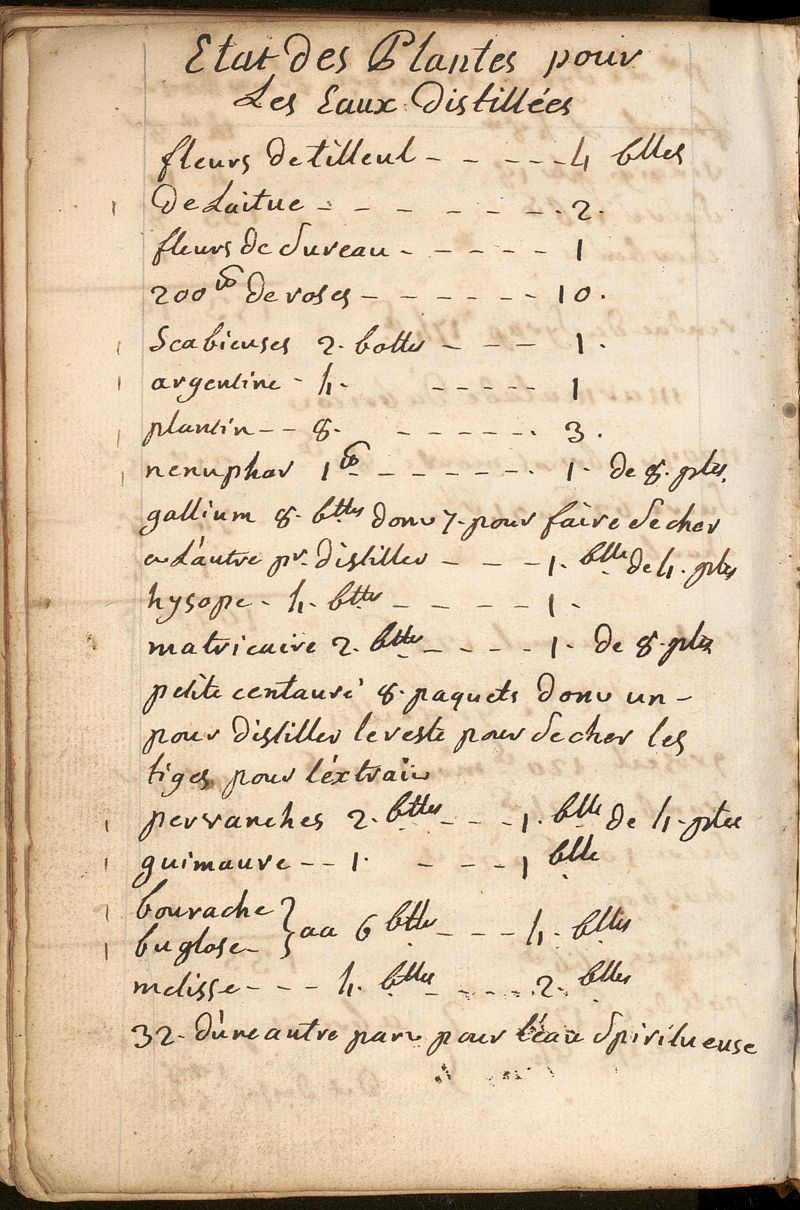 Etat des Plantes pour
Les Eaux Distillées
fleurs de tilleul - - - - - 4 blles
De Laitue - - - - - - - 2.
fleurs de Sureau - - - - - 1
200 de roses - - - - - - 10.
Scabieuses 2. bottes - - - 1.
argentine - 4. - - - - - 1
plantin - - 8. - - - - - 3.
nenuphar 1 - - - - - - 1. de 8. ptes.
gallium 8. bttes donc 7. pour faire Secher
et L'autre pr. distiller - - - 1. blle de 4. ptes
hysope - 4. bttes - - - - 1.
matricaire 2. bttes - - - - 1. de 8. ptes
petite centauré 8. paquets donc un -
pour distiller le reste pour Secher les
tiges pour l'éxtrait
pervanches 2. bttes - - - 1. blle de 4. ptes
guimauve - - 1. - - - 1 blle
bourache }
buglose - } aa 6 bttes - - - 4. blles
melisse - - - 4. bttes - - - - 2. blles
32. d'une autre part pour l'éau Spiritueuse